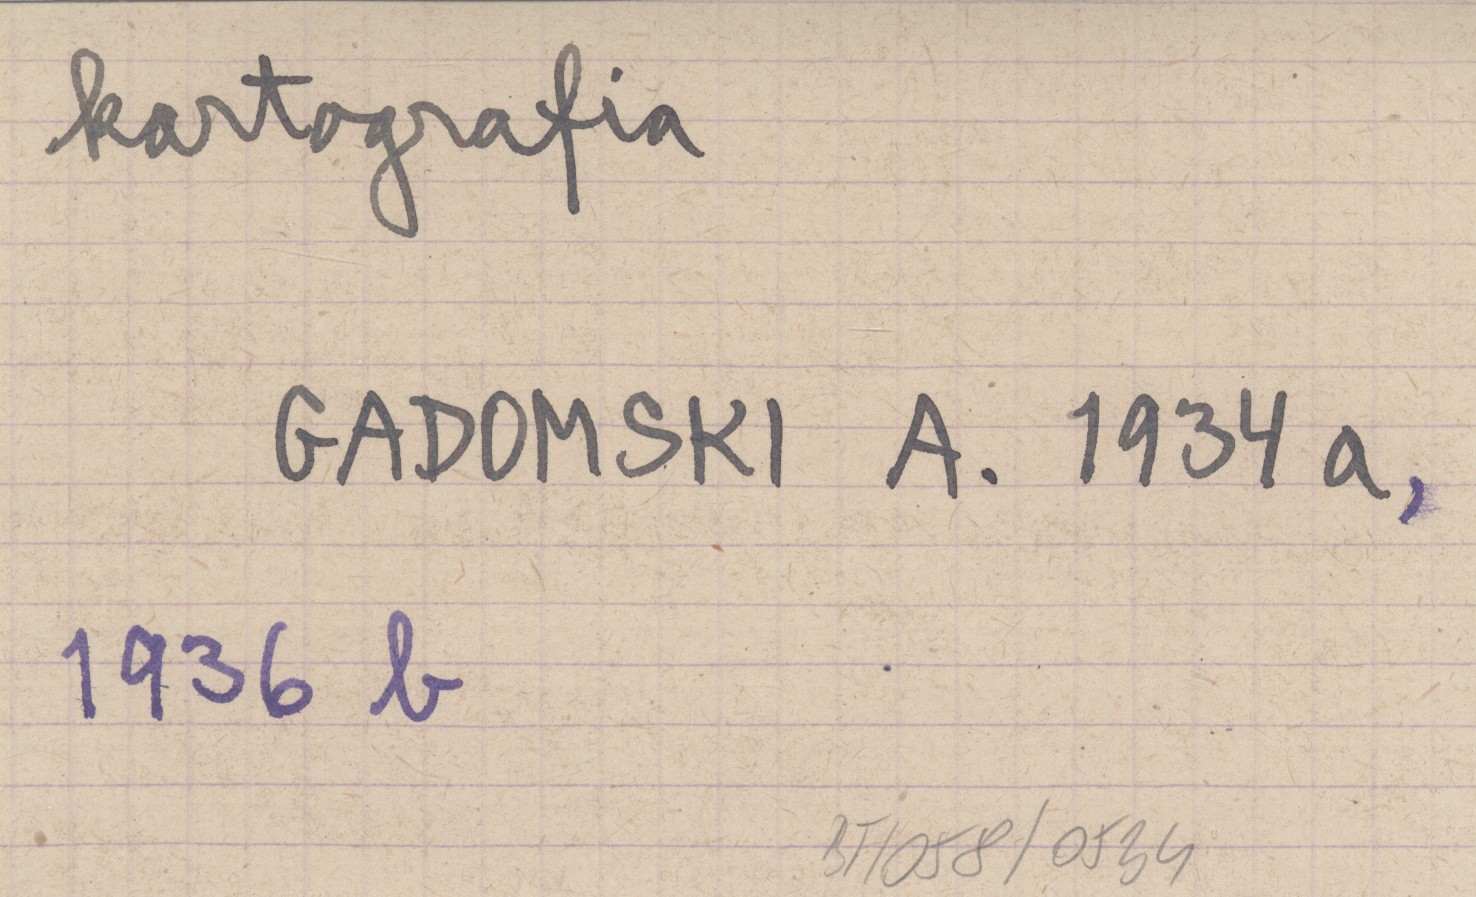 kartografia
GADOMSKI A. 1934 a,
1936 b
BT/058/0534